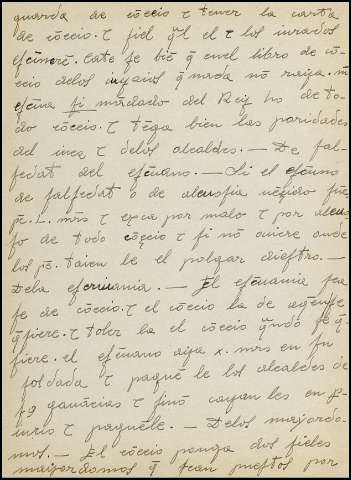 guarda de cōceio τ tener la carta
de cōceio. τ fiel q̃l el τ los iurados
escōnerē. Cate se biē q̃ en el libro de cō-
ceio delos iuyzios q̃ nada nō raiga. nī
escīua si mādado del Rey ho de to-
do cōceio. τ tēga bien las poridades
del iuez τ delos alcaldes. — De fal-
sedat del escīuano. — Si el escīuno
de falsedat o de aleuosia uēçido fue
pē. .... mrs τ exca por malo τ por aleuo
so de todo cōçeio τ si nō ouiere onde
los pē. taien le el polgar diestro. —
Dela escriuania. — El escīuania sea
se de cōceio. τ el cōceio la de aquien se
q̃siere. τ toler la el cōceio q̃ndo se q̃-
siere. el escīuano aya x. mrs en su
soldada τ paguē le los alcaldes de
sꝯ ganācias τ sinō cayan les en p̱-
iurio τ paguēle. — Delos mayordo-
mos. — El cōceio ponga dos fieles
maiordomos q̃ sean puestos por